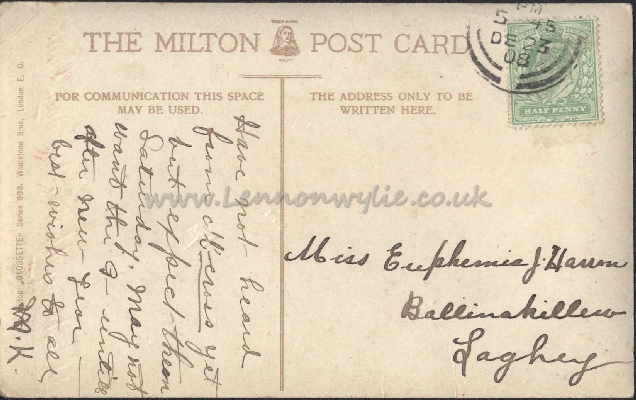 THE MILTON POST CARD
MILTON
FOR COMMUNICATION THIS SPACE
MAY BE USED.
THE ADDRESS ONLY TO BE
WRITTEN HERE.
PM
DE 23
08
HALF PENNY
Series 608. Woolstone Bros., London E. C.
Have not heard
from yet
but expect them
Saturday. May not
want the until
after New Year
best-wishes to all
www.Lennonwylie.co.uk
Miss Euphemia J. Harron
Ballinakillew
Laghey